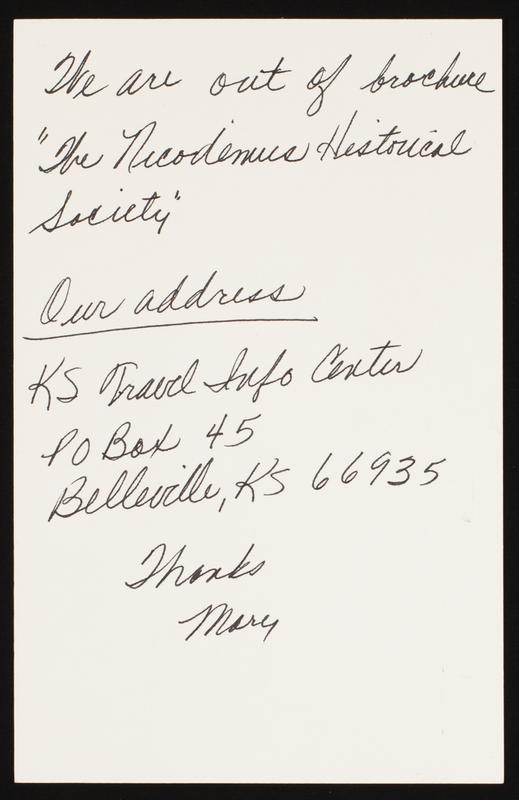 We are out of brochure
"The Nicodemus Historical
Society"
Our address
KS Travel Info Center
PO Box 45
Belleville, KS 66935
Thanks
Mary